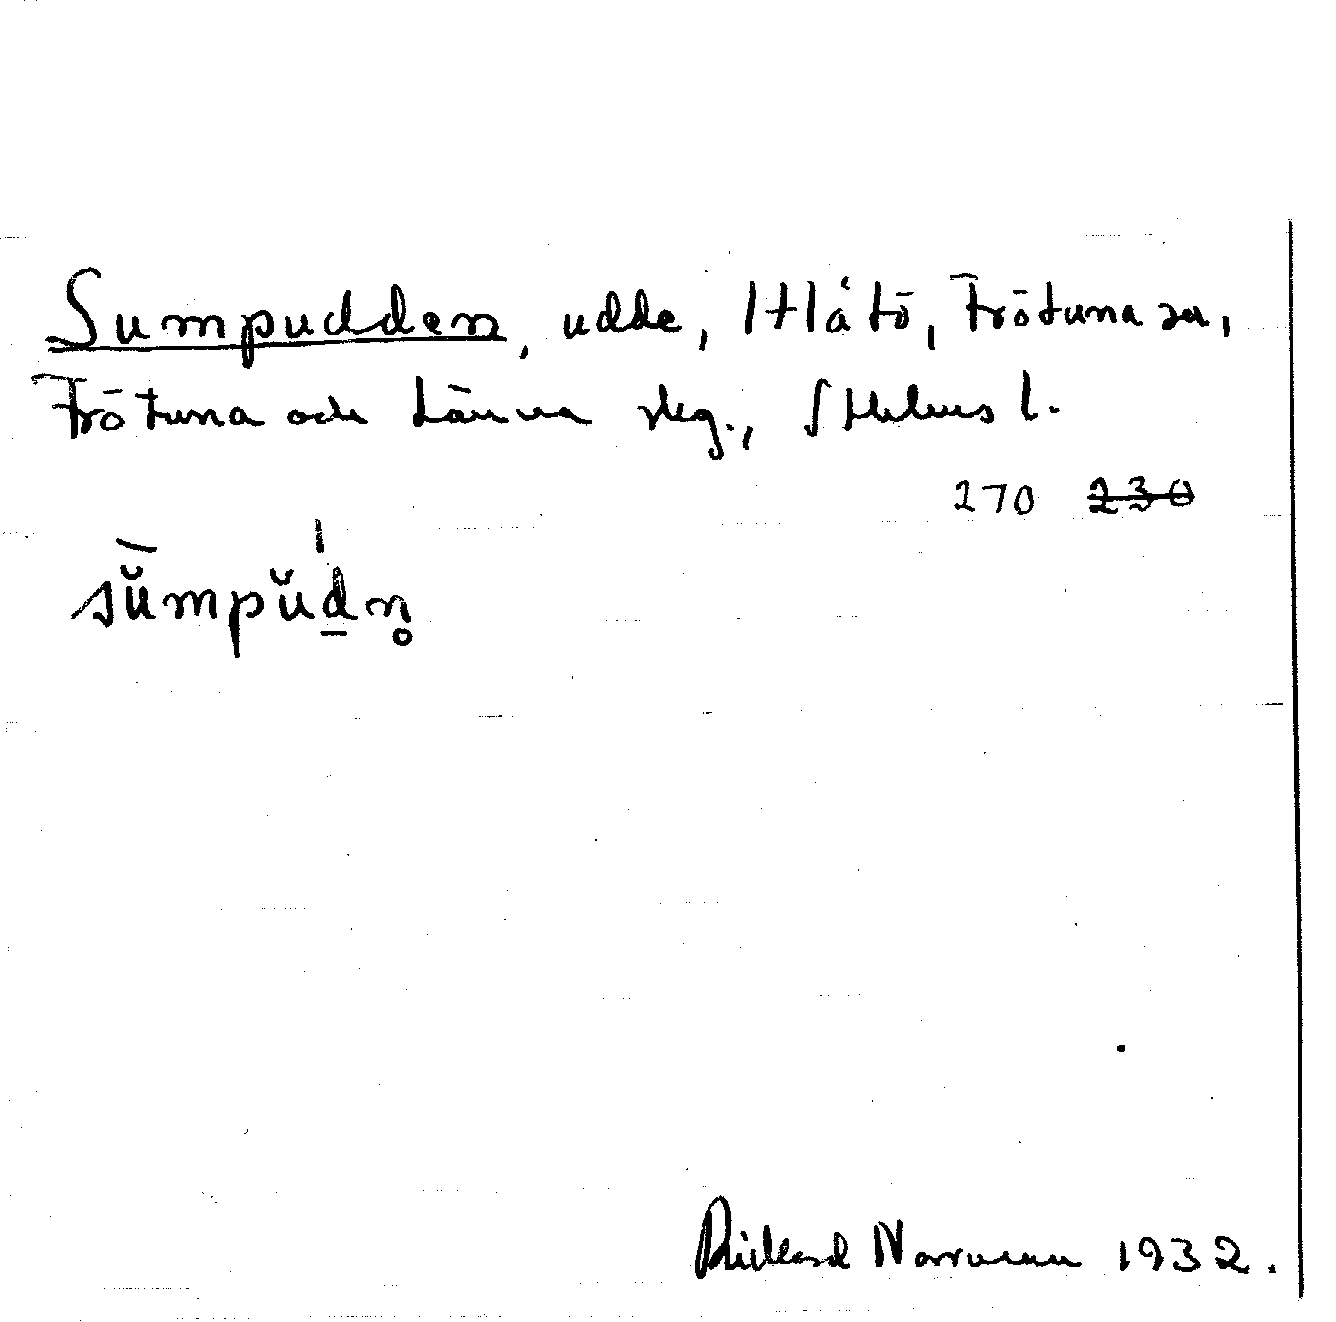 Sumpudden, udde, Håtö, Frötuna sn,
Frötuna och Länna skg., Sthlms l.
270 230
sŭmpŭdn̥
Rickard Norrman 1932.